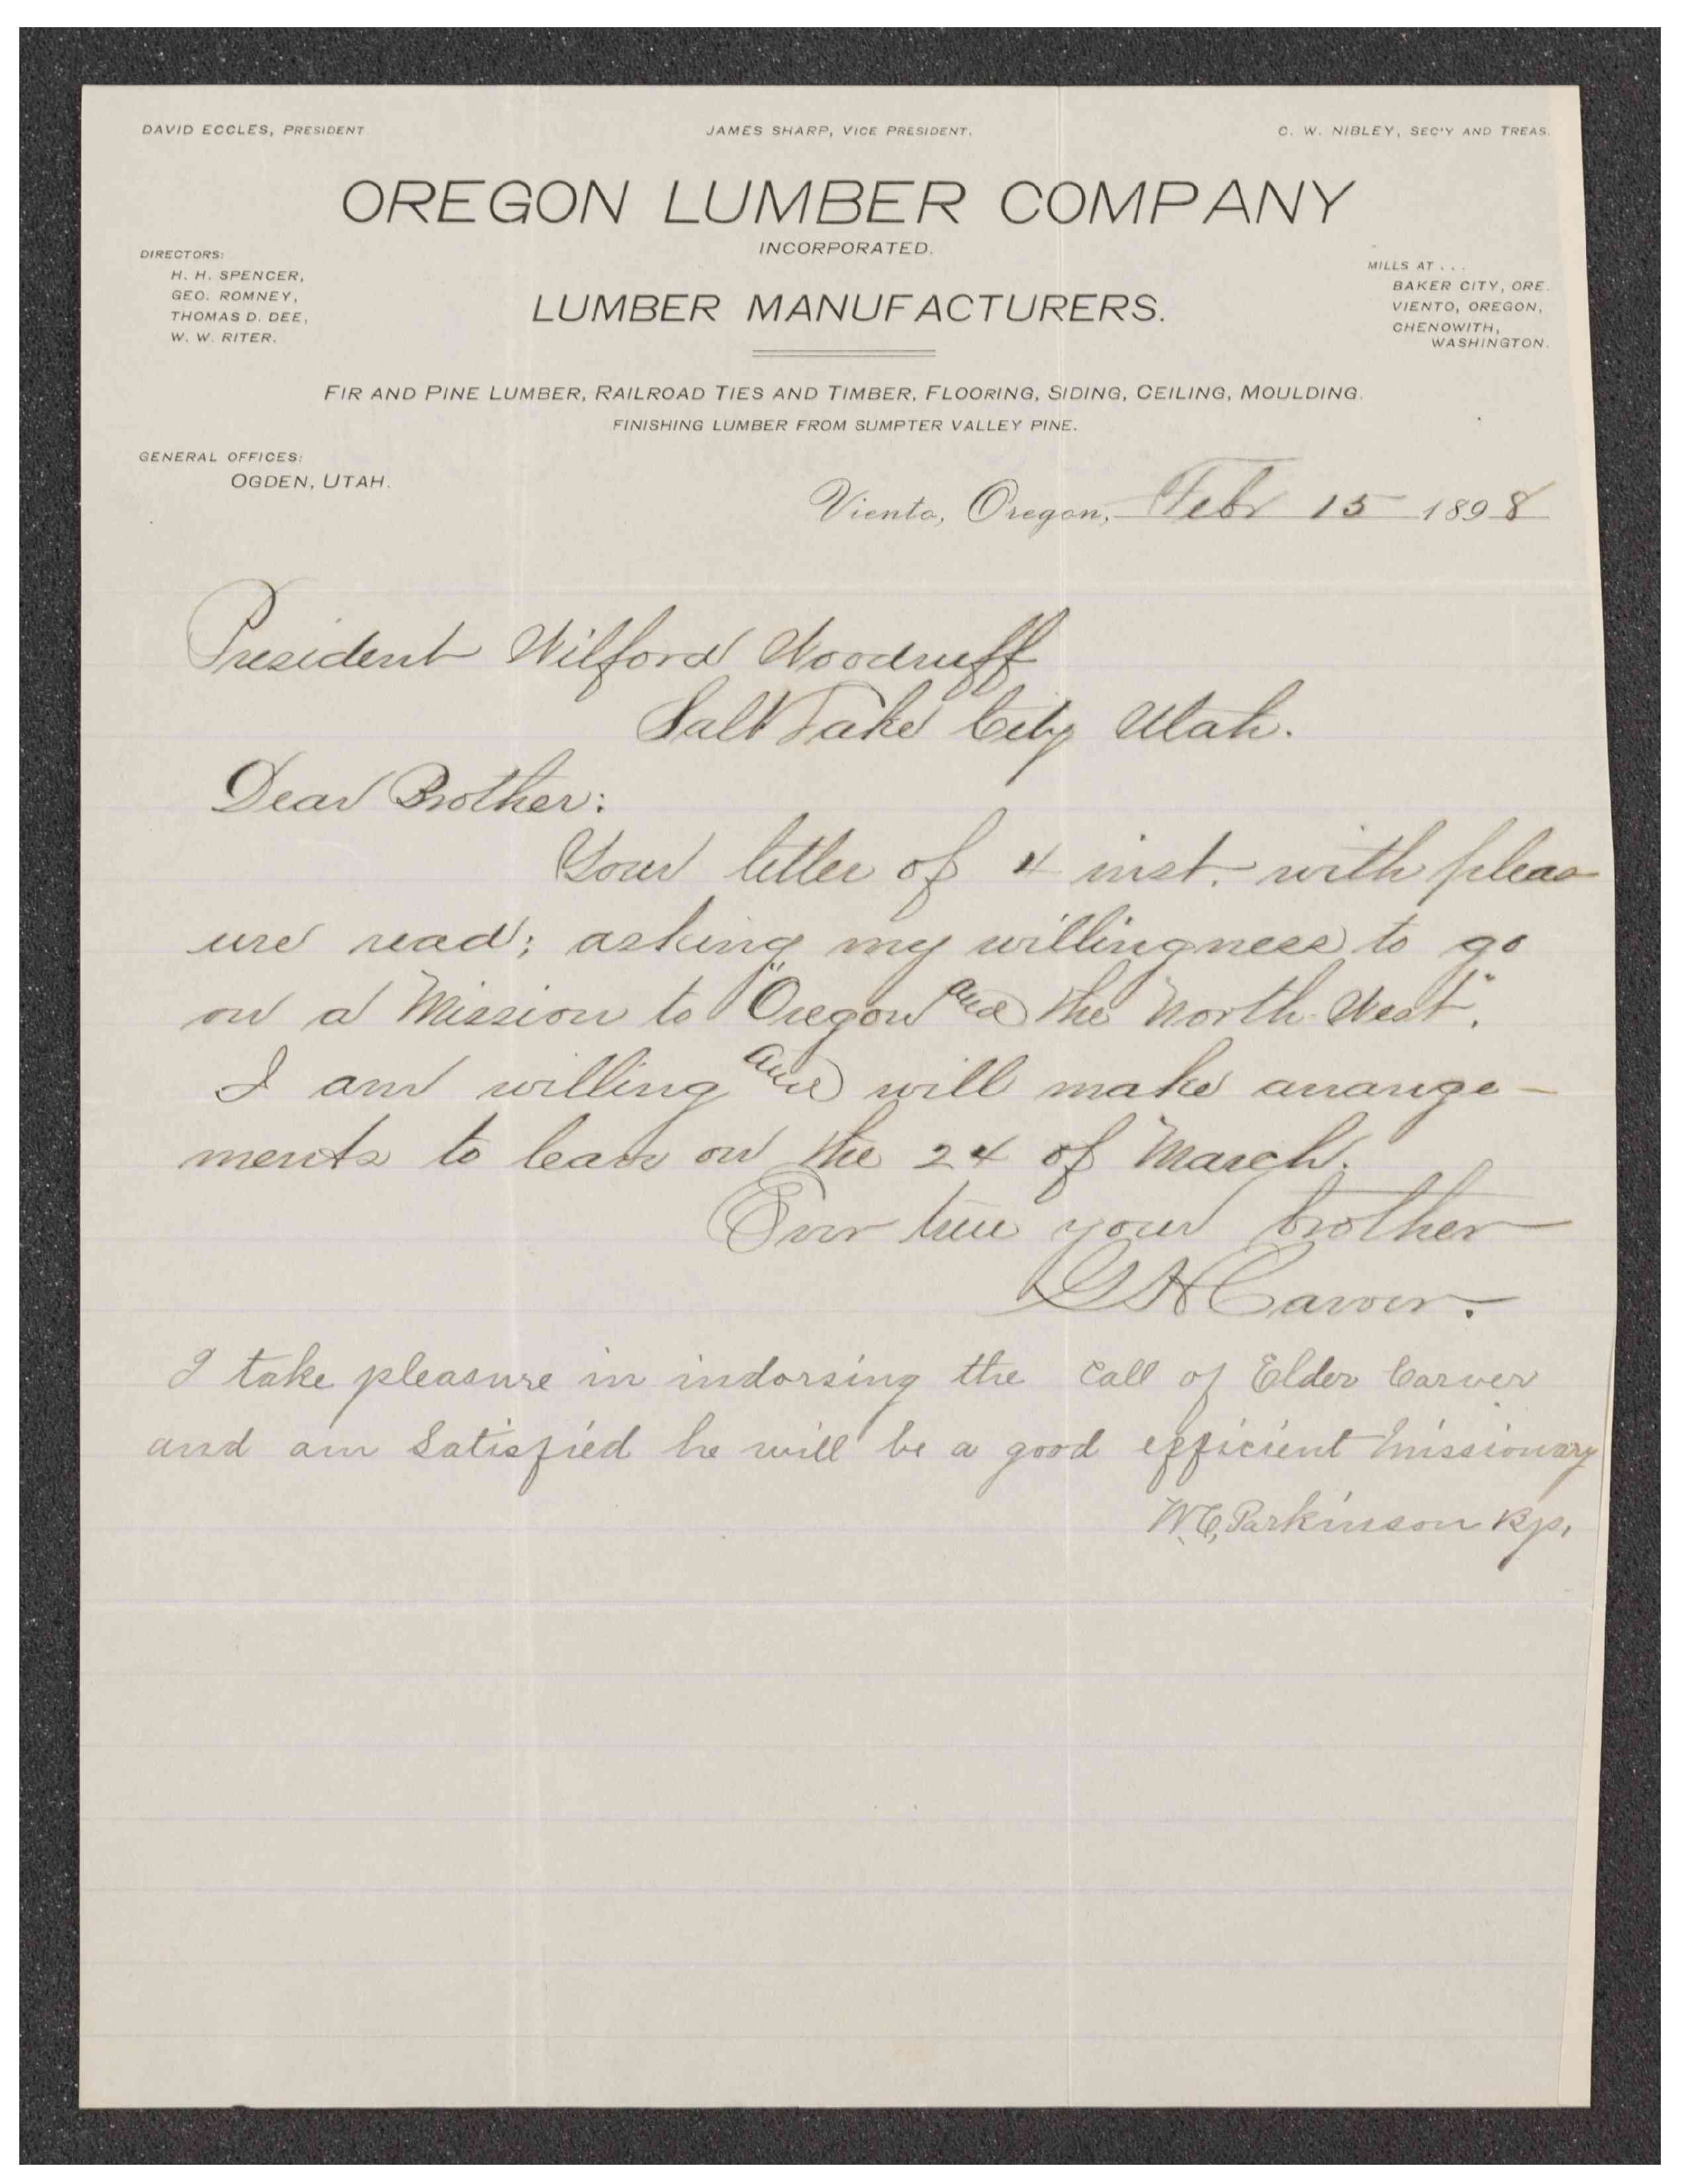 DAVID ECCLES, PRESIDENT
JAMES SHARP, VICE PRESIDENT.
C. W. NIBLEY, SEC'Y AND TREAS.
OREGON LUMBER COMPANY
INCORPORATED.
LUMBER MANUFACTURERS.
DIRECTORS:
H. H. SPENCER,
GEO. ROMNEY,
THOMAS D. DEE,
W. W. RITER.
MILLS AT . . .
BAKER CITY, ORE.
VIENTO, OREGON,
CHENOWITH,
WASHINGTON.
FIR AND PINE LUMBER, RAILROAD TIES AND TIMBER, FLOORING, SIDING, CEILING, MOULDING.
FINISHING LUMBER FROM SUMPTER VALLEY PINE.
GENERAL OFFICES:
OGDEN, UTAH.
Viento, Oregon, Febr 15 1898
President Wilford Woodruff
Salt Lake City Utah.
Dear Brother:
Your letter of 4 inst. with pleas
ure read; asking my willingness to go
on a Mission to "Oregon and the North-West".
I am willing and will make arrange-
ments to leave on the 24 of March.
Ever true your brother
G H Carver.
I take pleasure in indorsing the call of Elder Carver
and am Satisfied he will be a good efficient missionary
W.C. Parkinson Bp.